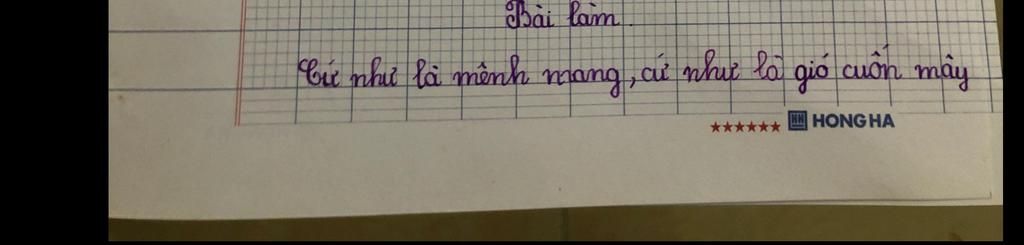 Bài làm.
Cứ như là mênh mang, cứ như là gió cuốn mây
HONG HA